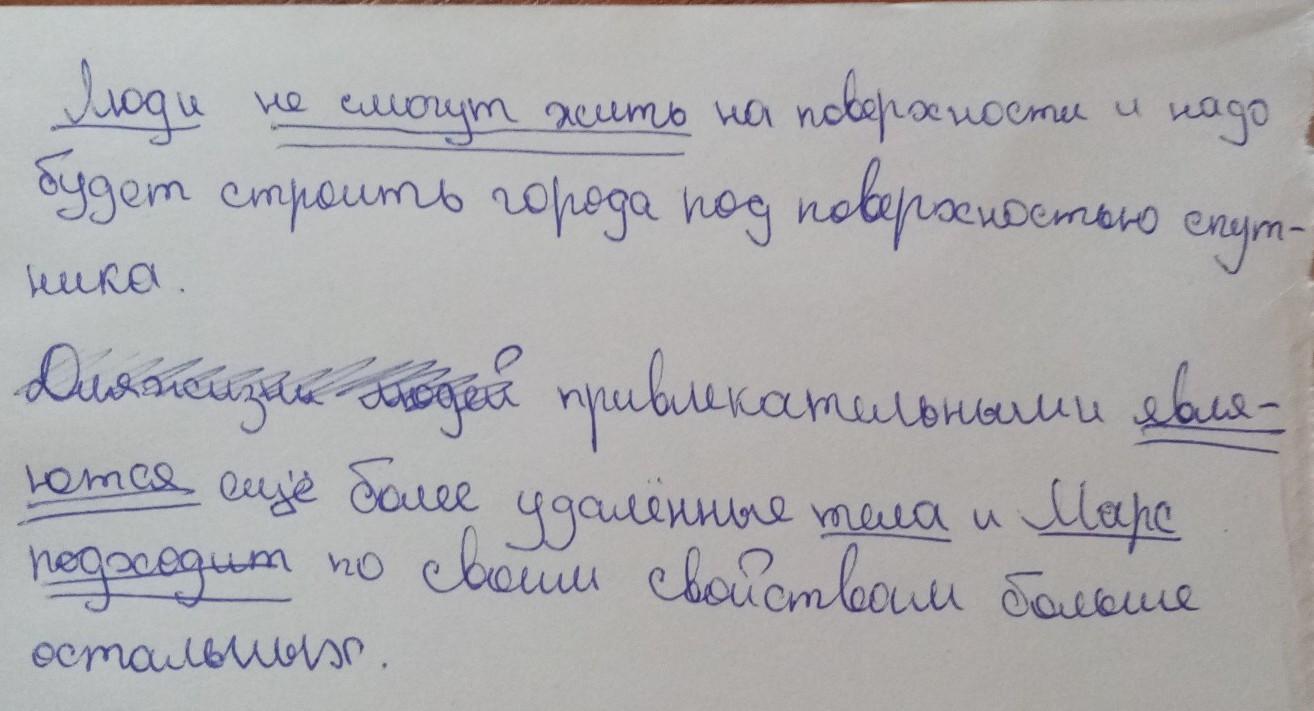 Люди не смогут жить на поверхности и надо
будет строить города под поверхностью спут-
ника.
Для жизни людей привлекательными явля-
ются ещё более удалённые тела и Марс
подходит по своим свойствам больше
остальных.